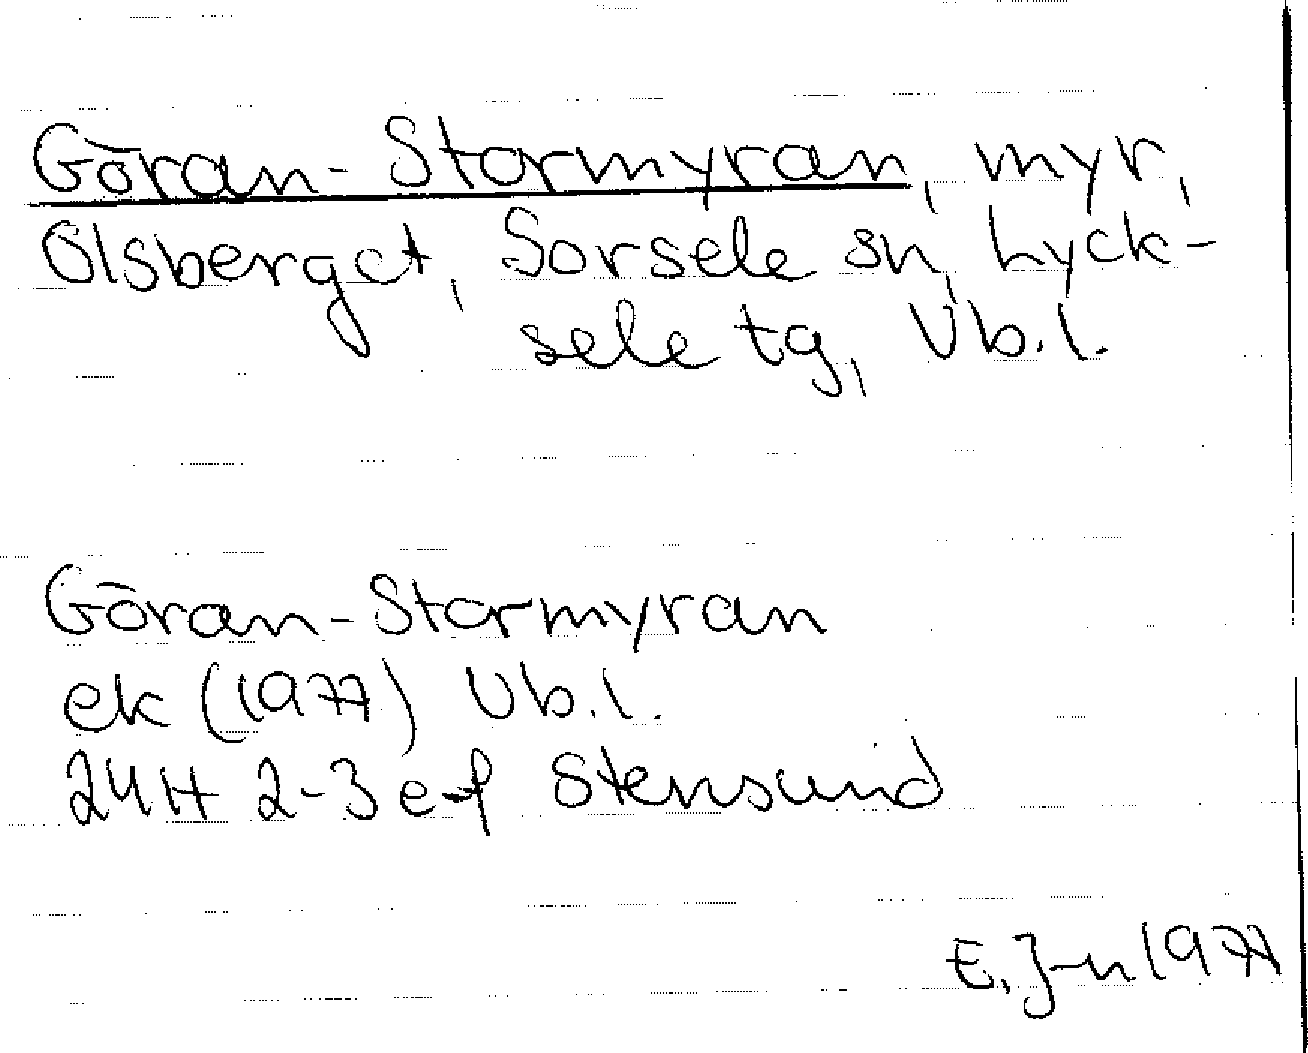 Göran-Stormyran, myr,
Olsberget, Sorsele sn, Lyck-
sele tg, Vb.l.
Göran-Stormyran
ek (1977) Vb.l.
24H 2-3 e-f Stensund
E.J-n 1977